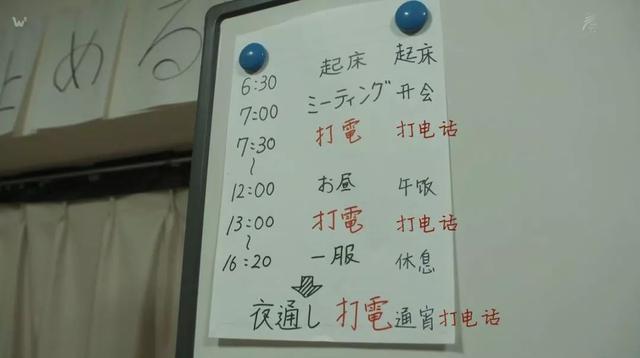 止める
6:30 起床 起床
7:00 ミーティング 开会
7:30 打電 打电话
〜
12:00 お昼 午饭
13:00 打電 打电话
〜
16:20 一服 休息
夜通し 打電 通宵打电话